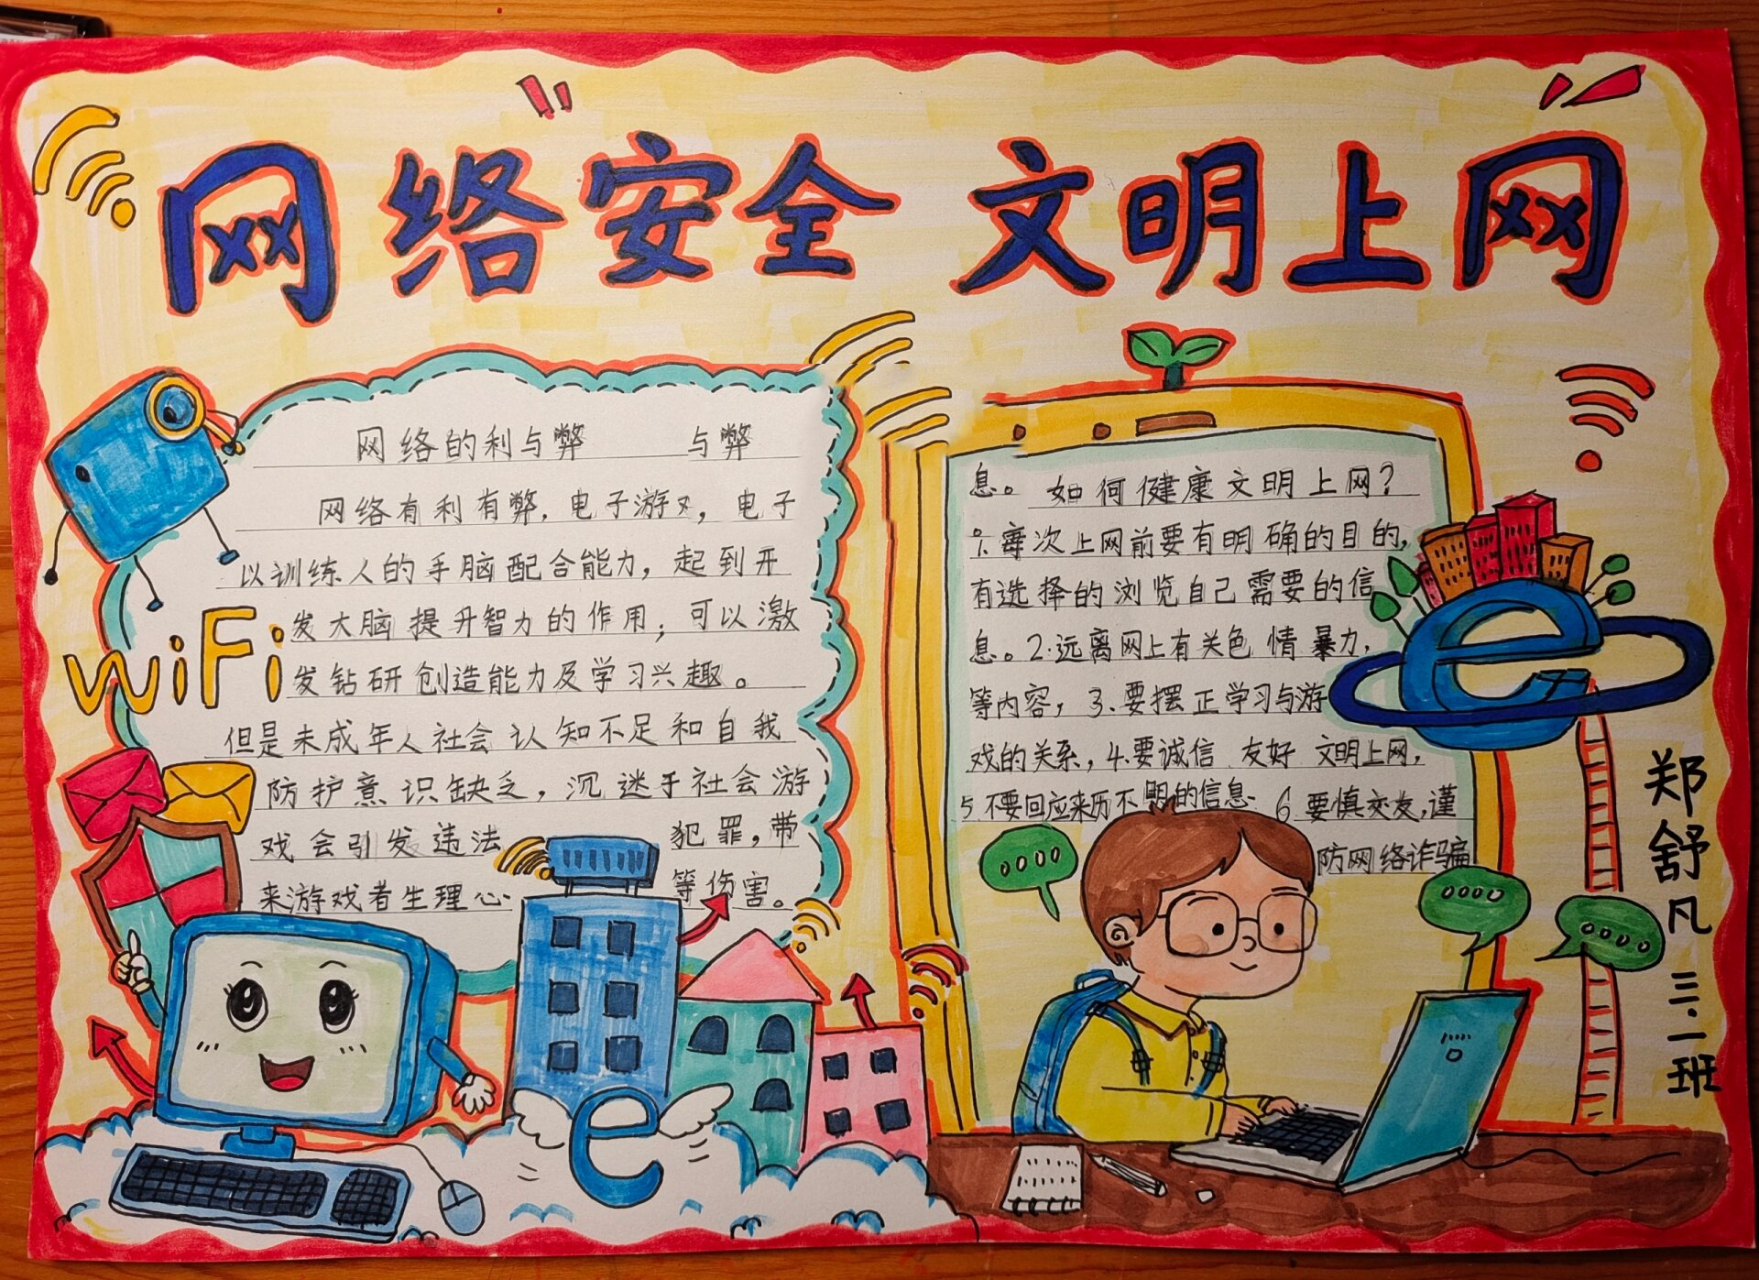 网络安全 文明上网
网络的利与弊 与弊
网络有利有弊.电子游戏，电子
以训练人的手脑配合能力，起到开
发大脑提升智力的作用；可以激
发钻研创造能力及学习兴趣。
但是未成年人社会认知不足和自我
防护意识缺乏，沉迷于社会游
戏会引发违法犯罪，带
来游戏者生理心等伤害。
WiFi
息。如何健康文明上网？
1.每次上网前要有明确的目的，
有选择的浏览自己需要的信
息。2.远离网上有关色情暴力，
等内容，3.要摆正学习与游
戏的关系，4.要诚信 友好 文明上网，
5不要回应来历不明的信息. 6要慎交友，谨
防网络诈骗
e
e
郑舒凡 三.二班